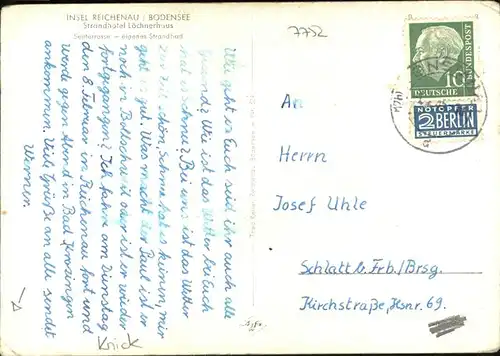 INSEL REICHENAU / BODENSEE
Strandhotel Löchnerhaus
Seeterrasse — eigenes Strandbad
7732
Wie geht es Euch seid Ihr auch alle
gesund? Wie ist das Wetter bei Euch
hat es Schnee? Bei uns ist das Wetter
zur Zeit schön, Schnee hat es keinen, mir
geht es gut. Was macht der Paul ist er
noch in Bollschweil oder ist er wieder
fortgegangen? Ich fahre am Dienstag
den 8. Februar in Reichenau fort und
werde gegen Abend in Bad Krozingen
ankommen. Viele Grüße an alle sendet
Werner
Knick
DEUTSCHE BUNDESPOST
10
NOTOPFER
2 BERLIN
STEUERMARKE
An
Herrn
Josef Uhle
Schlatt b. Frb./Brsg.
Kirchstraße, Hsnr. 69.